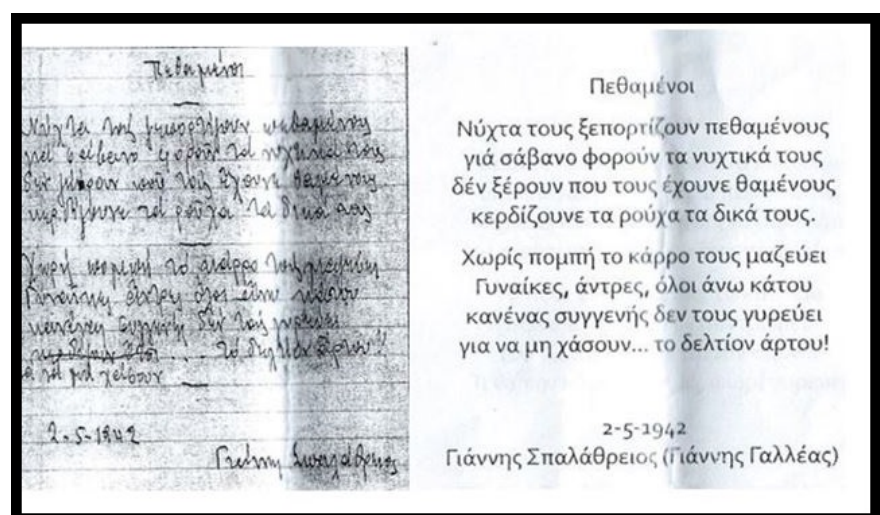 Πεθαμένοι
Νύχτα τούς ξεπορτίζουν πεθαμένους
γιά σάβανο φορούν τά νυχτικά τους
δέν ξέρουν πού τούς έχουνε θαμένους
κερδίζουνε τά ρούχα τά δικά τους
Χωρίς πομπή τό κάρρο τούς μαζεύει
Γυναίκες άντρες όλοι άνω κάτου
κανένας συγγενής δέν τούς γυρεύει
... τό δελτίον άρτου!!
νά μή χάσουν
2-5-1942
Γιάννης Σπαλάθρειος
Πεθαμένοι
Νύχτα τους ξεπορτίζουν πεθαμένους
γιά σάβανο φορούν τα νυχτικά τους
δέν ξέρουν που τους έχουνε θαμένους
κερδίζουνε τα ρούχα τα δικά τους.
Χωρίς πομπή το κάρρο τους μαζεύει
Γυναίκες, άντρες, όλοι άνω κάτου
κανένας συγγενής δεν τους γυρεύει
για να μη χάσουν... το δελτίον άρτου!
2-5-1942
Γιάννης Σπαλάθρειος (Γιάννης Γαλλέας)